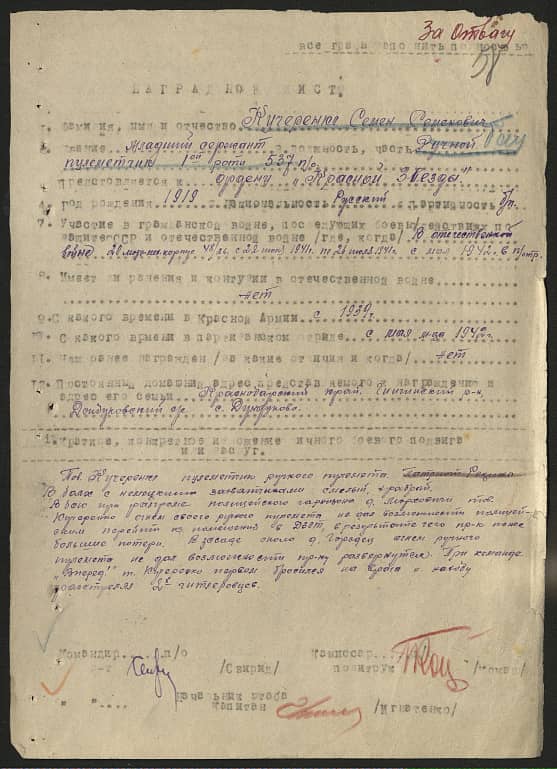 За Отвагу
все графы заполнить полностью
58
НАГРАДНОЙ ЛИСТ
1. Фамилия, имя и отчество Кучеренко Семен Семенович
2. Звание Младший сержант 3. должность, часть Ручной
пулеметчик 1ой роты 537 п/о
4. Представляется к ордену "Красной Звезды"
4. Год рождения 1919 5. национальность Русский 6. партийность б/п.
7. Участие в гражданской войне, последующих боевых действиях по
защите СССР и отечественной войне /где, когда/ В отечественной
войне, 20 мехкорпус с 22 июня 1941г. по 21 июля 1941г. с мая 1942г. в п/отр.
8. Имеет ли ранения и контузии в отечественной войне
нет
9. С какого времени в Красной Армии с 1939г.
10. С какого времени в партизанском отряде с мая м-ца 1942г.
11. Чем ранее награжден /за какие отличия и когда/ нет
12. Постоянный домашний адрес представляемого к награждению и
адрес его семьи Краснодарский край, р-н,
с.
1. Краткое, конкретное изложение личного боевого подвига
или заслуг.
Тов. Кучеренко пулеметчик ручного пулемета
В боях с немецкими захватчиками смелый, храбрый.
В бою при разгроме полицейского гарнизона д. тов.
Кучеренко огнем своего ручного пулемета не дал возможности полицейским
перейти из помещения в ДЗОТ, в результате чего пр-к понес
большие потери. В засаде около д. Городец огнем ручного
пулемета не дал возможности пр-ку развернуться. При команде
"Вперед!" т. Кучеренко первым бросился на врага и
расстрелял 2х гитлеровцев.
Командир п/о
/Свирид/
Комиссар п/о
политрук /Комар/
Начальник штаба
капитан /Игнатенко/